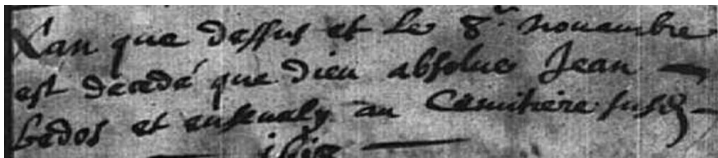 Lan que dessus et le 8e nouembre
est decedé que dieu absolue Jean
bedos et enseuely au Cemitiere susd